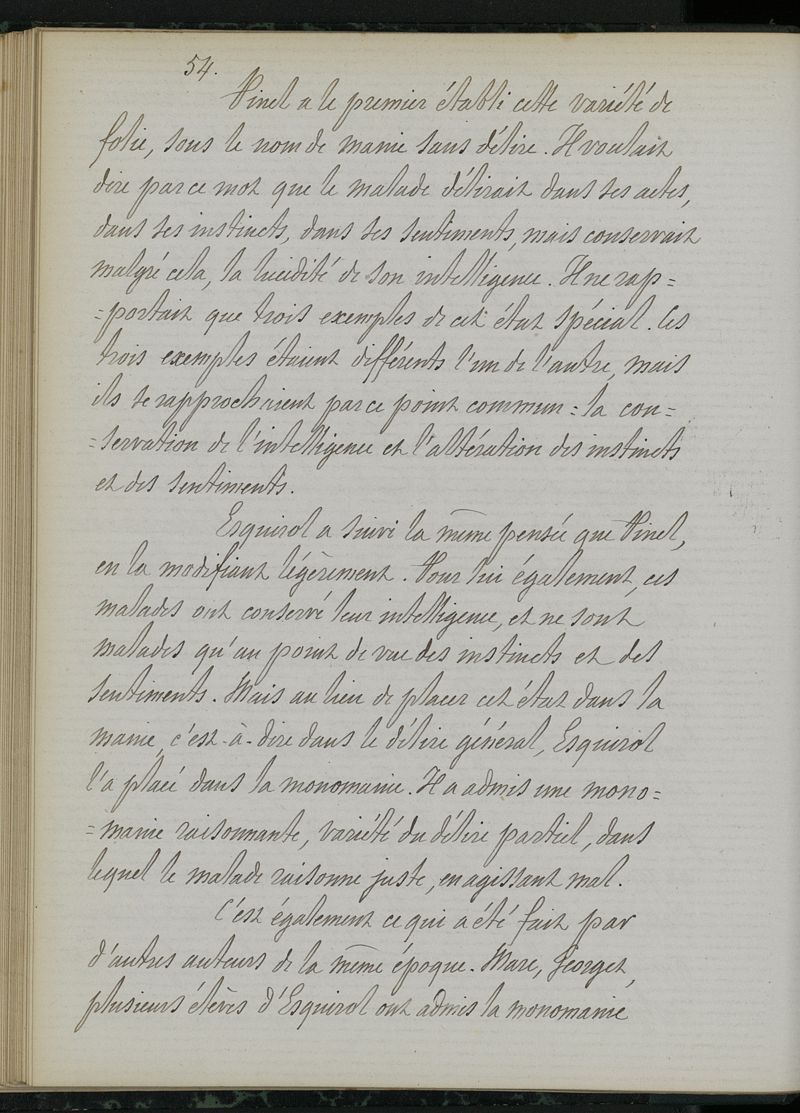 54.
Pinel a le premier établi cette variété de
folie, sous le nom de manie sans délire. Il voulait
dire par ce mot que le malade délirait dans ses actes,
dans ses instincts, dans ses sentiments, mais conservait
malgré cela, la lucidité de son intelligence. Il ne rap=
=portait que trois exemples de cet état spécial. Ces
trois exemples étaient différents l'un de l'autre, mais
ils se rapprochaient par ce point commun : la con=
=servation de l'intelligence et l'altération des instincts
et des sentiments.
Esquirol a suivi la même pensée que Pinel,
en la modifiant légèrement. Pour lui également, ces
malades ont conservé leur intelligence, et ne sont
malades qu'au point de vue des instincts et des
sentiments. Mais au lieu de placer cet état dans la
manie, c'est-à-dire dans le délire général, Esquirol
l'a placé dans la monomanie. Il a admis une mono=
=manie raisonnante, variété du délire partiel, dans
lequel le malade raisonne juste, en agissant mal.
C'est également ce qui a été fait par
d'autres auteurs de la même époque. Marc, Georget,
plusieurs élèves d'Esquirol ont admis la monomanie